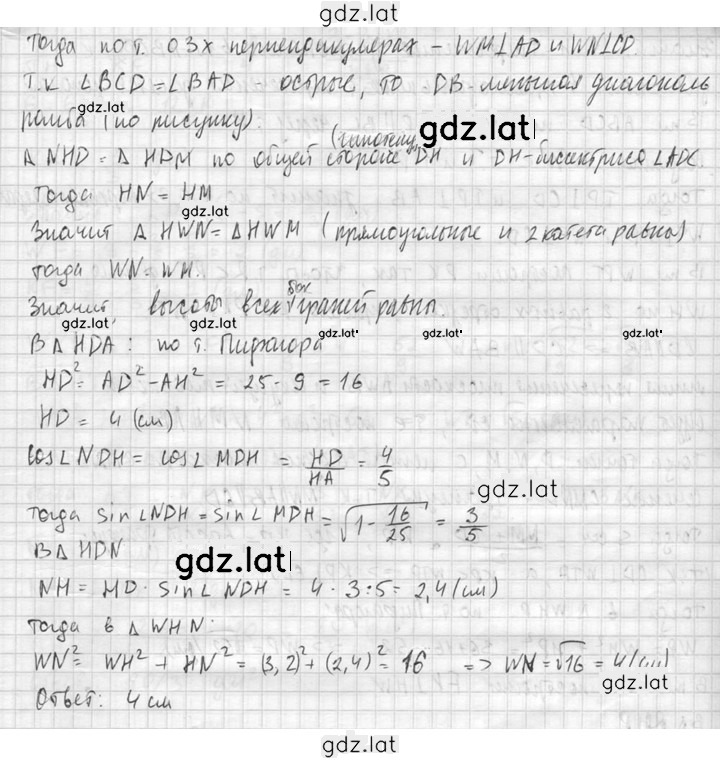 gdz.lat
Тогда по т. о 3х перпендикулярах - WM⊥AD и WN⊥CD.
Т.к ∠BCD = ∠BAD - острые, то DB - меньшая диагональ
gdz.lat
ромба (по рисунку)
(гипотенузе) gdz.lat
Δ NHD = Δ HDM по общей стороне DH и DH - биссектриса ∠ADC.
Тогда HN = HM
gdz.lat
Значит Δ HWN = Δ HWM (прямоугольные и 2 катета равны)
тогда WN = WM.
бок
Значит, высоты всех граней равны
gdz.lat gdz.lat gdz.lat gdz.lat
В Δ HDA: по т. Пифагора
HD² = AD² - AH² = 25 - 9 = 16
HD = 4 (см)
cos∠NDH = cos∠MDH = HD/HA = 4/5
gdz.lat
Тогда sin∠NDH = sin∠MDH = √(1 - 16/25) = 3/5
В Δ HDN
gdz.lat
NH = HD · sin∠NDH = 4 · 3 : 5 = 2,4 (см)
тогда в Δ WHN:
WN² = WH² + HN² = (3,2)² + (2,4)² = 16 => WN = √16 = 4 (см)
gdz.lat
Ответ: 4 см
gdz.lat